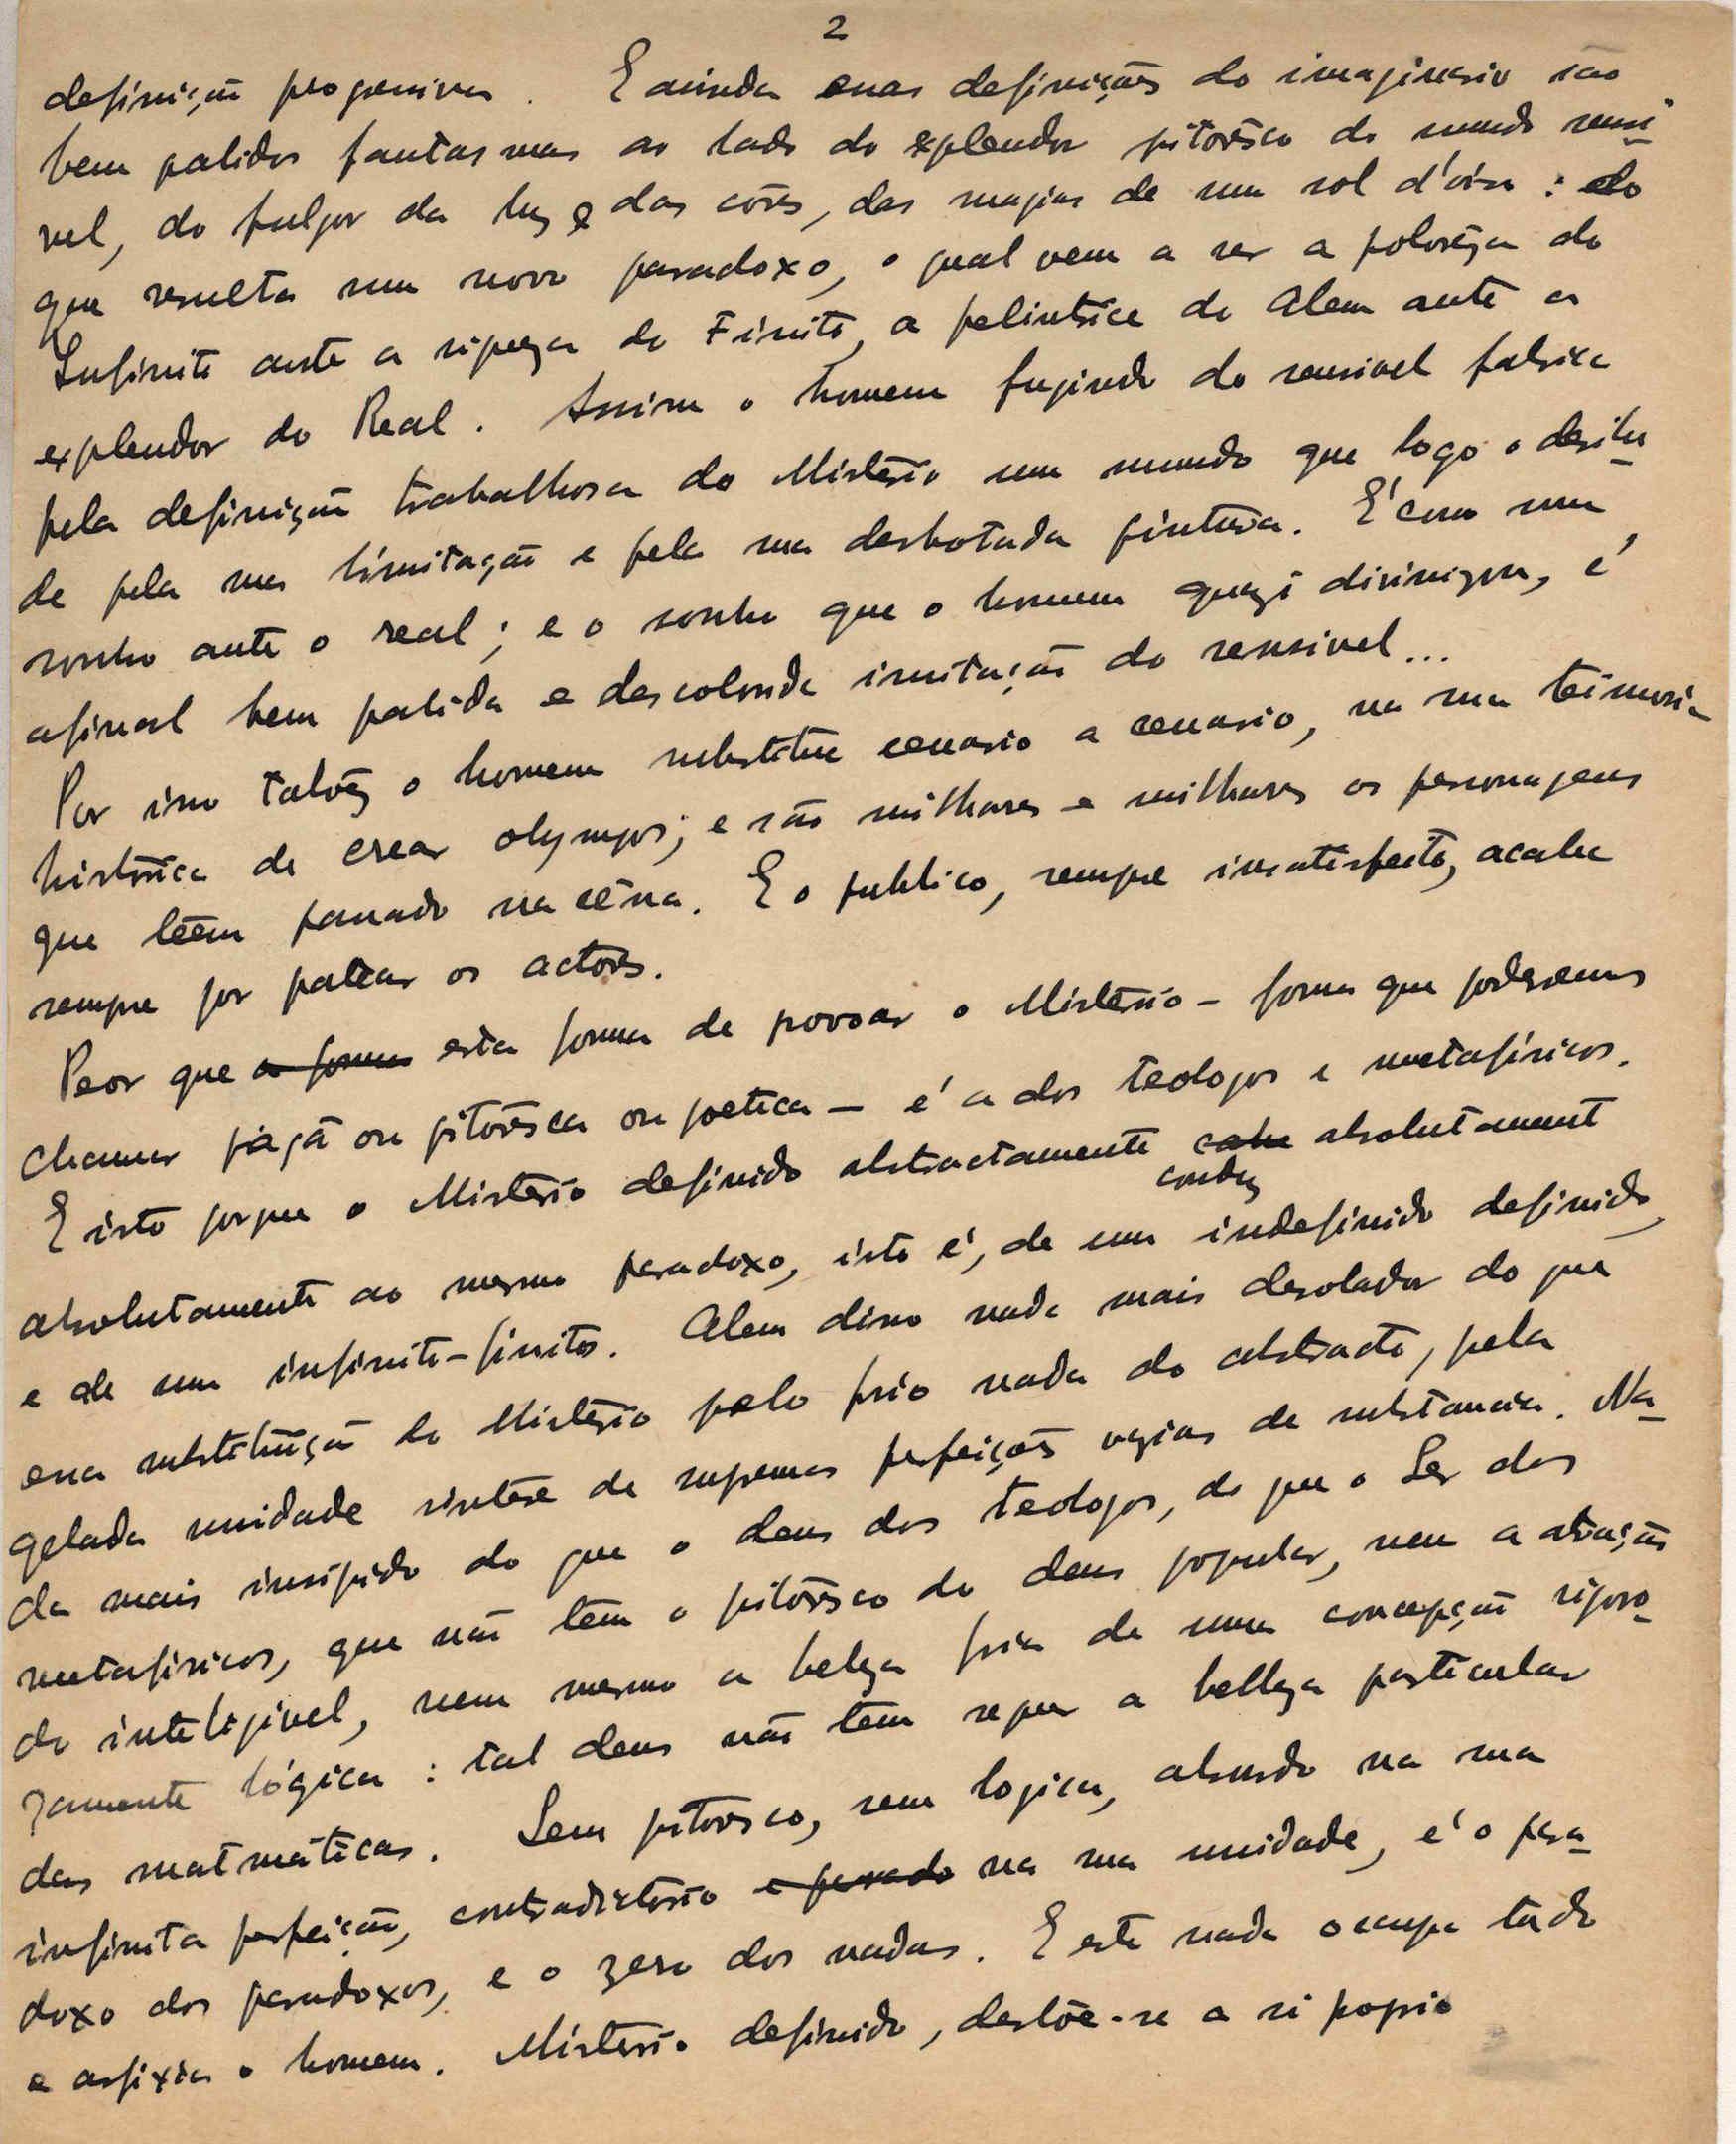 2
definição progressiva. E ainda essas definições do imaginario são
bem palidos fantasmas ao lado do explendor pitorêsco do mundo sensi-
vel, do fulgor da luz e das côres, das magias de um sol d'oiro: do
que resulta um novo paradoxo, o qual vem a ser a pobrêza do
Infinito ante a riqueza do Finito, a pelintrice do Alem ante o
explendor do Real. Assim o homem fugindo do sensivel fabrica
pela definição trabalhosa do Mistério um mundo que logo o desilu-
de pela sua limitação e pela sua desbotada pintura. É como um
sonho ante o real; e o sonho que o homem quazi divinizou, é,
afinal bem palida e descolorida imitação do sensivel...
Por isso talvêz o homem substitue cenario a cenario, na sua teimosia
histórica de crear olympos; e são milhares e milhares os personagens
que têem passado na cêna. E o publico, sempre insatisfeito, acaba
sempre por patear os actores.
Peor que a forma esta forma de povoar o Mistério - forma que poderemos
chamar pagã ou pitorêsca ou poetica - é a dos teologos e metafisicos.
E isto porque o Mistério definido abstractamente cabe absolutament
conduz
absolutamente ao mesmo paradoxo, isto é, de um indefinido definido,
e de um infinito-finito. Alem disso nada mais desolador do que
essa substituição do Mistério pelo frio nada do abstracto, pela
gelada unidade sintese de supremas perfeições vazias de substancia. Na-
da mais insípido do que o deus dos teologos, do que o Ser dos
metafisicos, que não têm o pitorêsco do deus popular, nem a atração
do inteligivel, nem mesmo a beleza fria de uma concepção rigoro-
zamente lógica: tal deus não tem sequer a belleza particular
das matmáticas. Sem pitoresco, sem logica, absurdo na sua
infinita perfeição, contradictorio e parado na sua unidade, é o para-
doxo dos paradoxos, e o zero dos nadas. E este nada ocupa tudo
e asfixia o homem. Mistério definido, destóe-se a si poprio